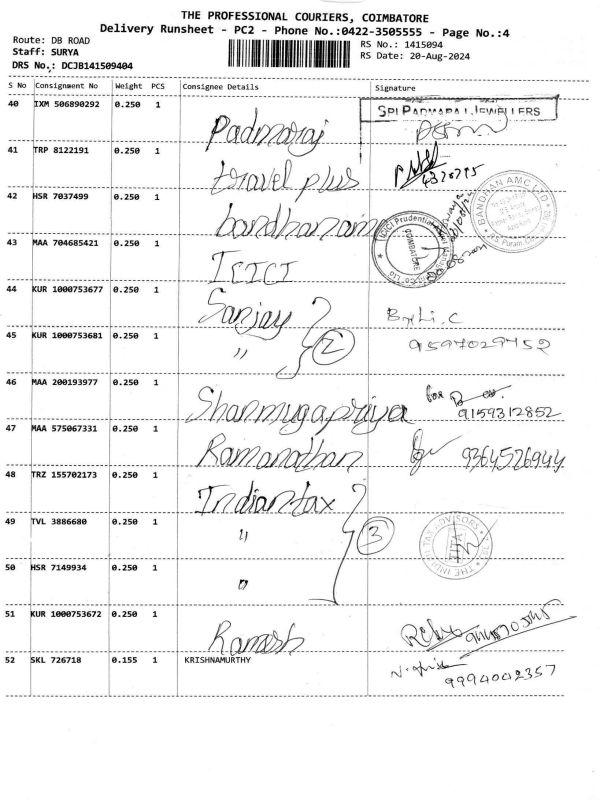 THE PROFESSIONAL COURIERS, COIMBATORE
Delivery Runsheet - PC2 - Phone No.:0422-3505555 - Page No.:4
Route: DB ROAD
RS No.: 1415094
Staff: SURYA
RS Date: 20-Aug-2024
DRS No.: DCJB141509404
S No Consignment No Weight PCS Consignee Details Signature
40 IXM 506890292 0.250 1 Padmaraj SRI PADMARAJ JEWELLERS
41 TRP 8122191 0.250 1 travel plus
42 HSR 7037499 0.250 1 bandhan amc BANDHAN AMC LTD
43 MAA 704685421 0.250 1 ICICI ICICI Prudential COIMBATORE
44 KUR 1000753677 0.250 1 Sanjay
45 KUR 1000753681 0.250 1 " 2 9597029752
46 MAA 200193977 0.250 1 Shanmugapriya for 9159312852
47 MAA 575067331 0.250 1 Ramanathan 9364526944
48 TRZ 155702173 0.250 1 Indian tax
49 TVL 3886680 0.250 1 " 3 THE INDIAN TAX ADVISORS
50 HSR 7149934 0.250 1 "
51 KUR 1000753672 0.250 1 Ramesh
52 SKL 726718 0.155 1 KRISHNAMURTHY 9994042357